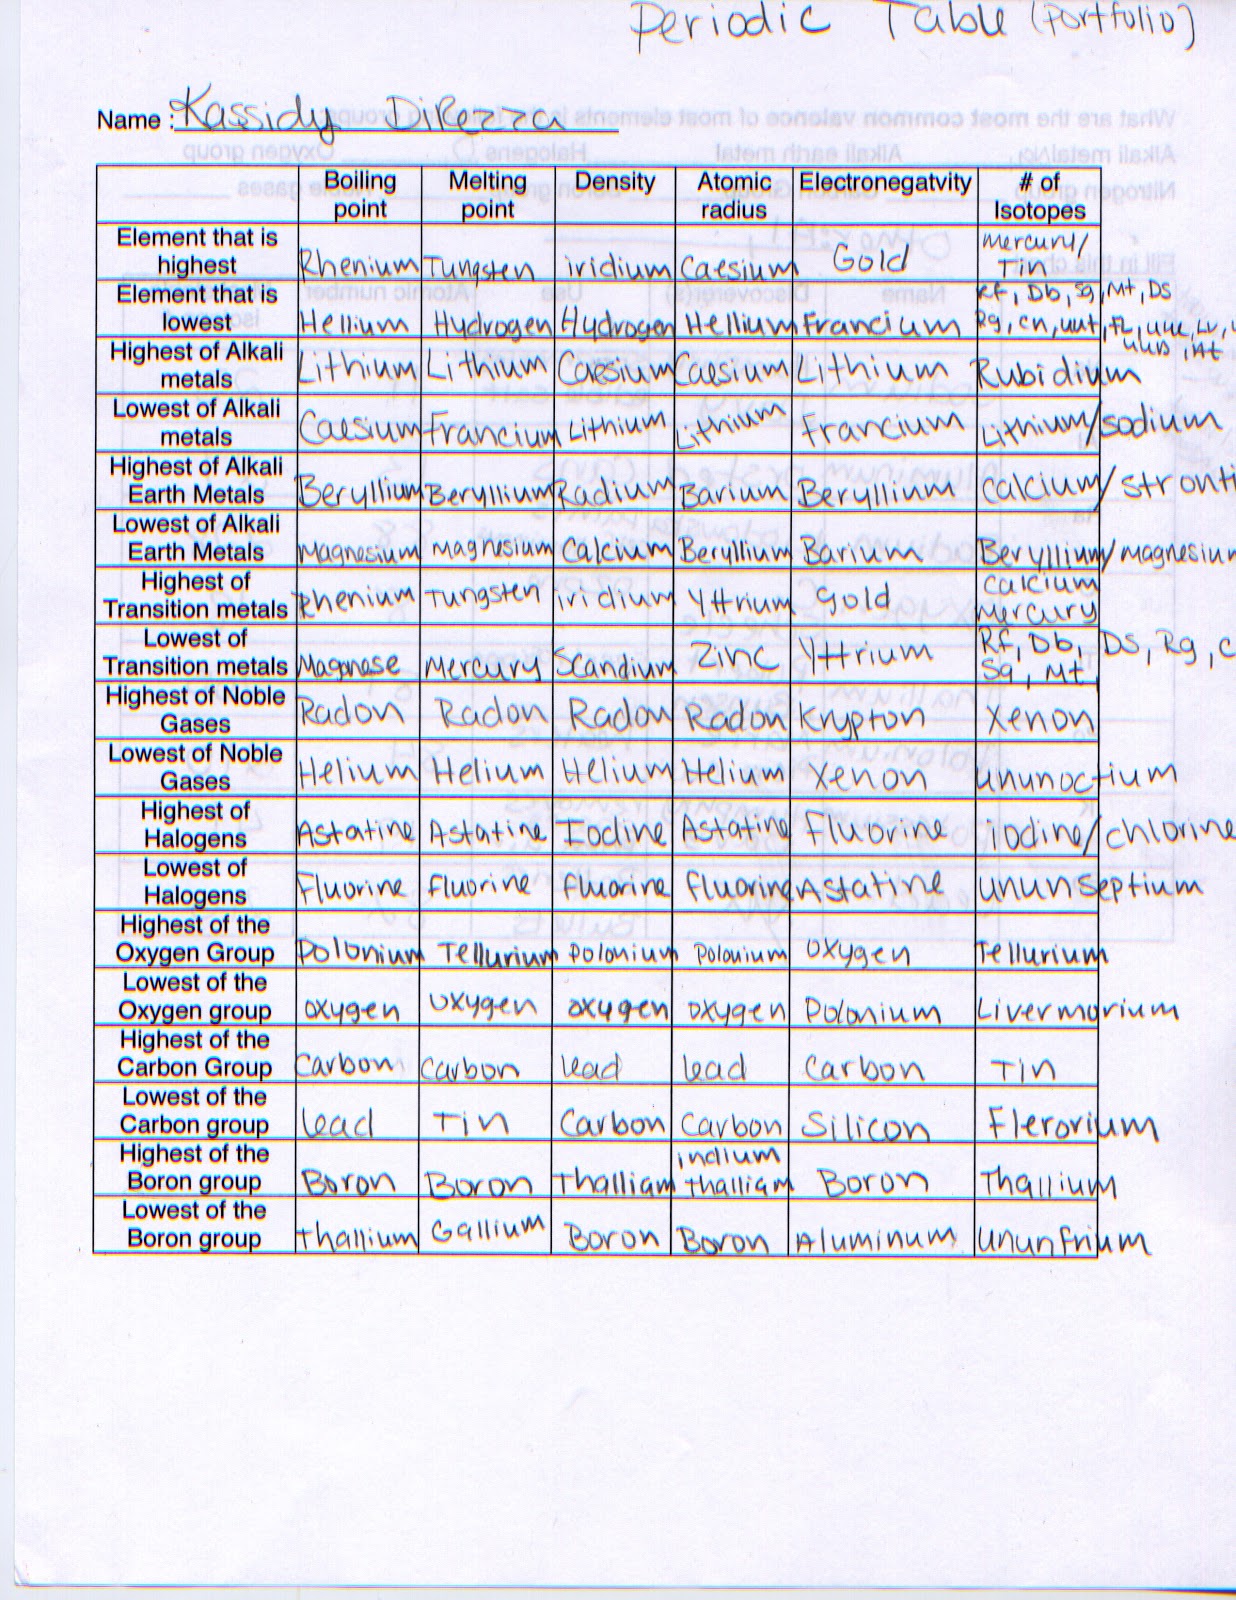 Periodic Table (Portfolio)
Name: Kassidy DiRezza
Boiling point Melting point Density Atomic radius Electronegatvity # of Isotopes
Element that is highest Rhenium Tungsten iridium Caesium Gold mercury/ Tin
Element that is lowest Hellium Hydrogen Hydrogen Hellium Francium Rf, Db, Sg, Mt, DS Rg, cn, uut, FL, uuu, Lv,
Highest of Alkali metals Lithium Lithium Caesium Caesium Lithium Rubidium
Lowest of Alkali metals Caesium Francium Lithium Lithium Francium Lithium/sodium
Highest of Alkali Earth Metals Beryllium Beryllium Radium Barium Beryllium Calcium/stronti
Lowest of Alkali Earth Metals Magnesium Magnesium Calcium Beryllium Barium Beryllium/magnesium
Highest of Transition metals Rhenium Tungsten iridium Yttrium Gold calcium Mercury
Lowest of Transition metals Maganase Mercury Scandium Zinc Yttrium Rf, Db, DS, Rg, C Sg, Mt,
Highest of Noble Gases Radon Radon Radon Radon Krypton Xenon
Lowest of Noble Gases Helium Helium Helium Helium Xenon ununoctium
Highest of Halogens Astatine Astatine Iodine Astatine Fluorine iodine/chlorine
Lowest of Halogens Fluorine fluorine fluorine fluorine Astatine ununseptium
Highest of the Oxygen Group Polonium Tellurium Polonium Polonium oxygen Tellurium
Lowest of the Oxygen group oxygen oxygen oxygen oxygen Polonium Livermorium
Highest of the Carbon Group Carbon carbon lead lead Carbon Tin
Lowest of the Carbon group lead Tin Carbon Carbon Silicon Flerorium
Highest of the Boron group Boron Boron Thalliam indium thalliam Boron Thallium
Lowest of the Boron group thallium Gallium Boron Boron Aluminum ununtrium